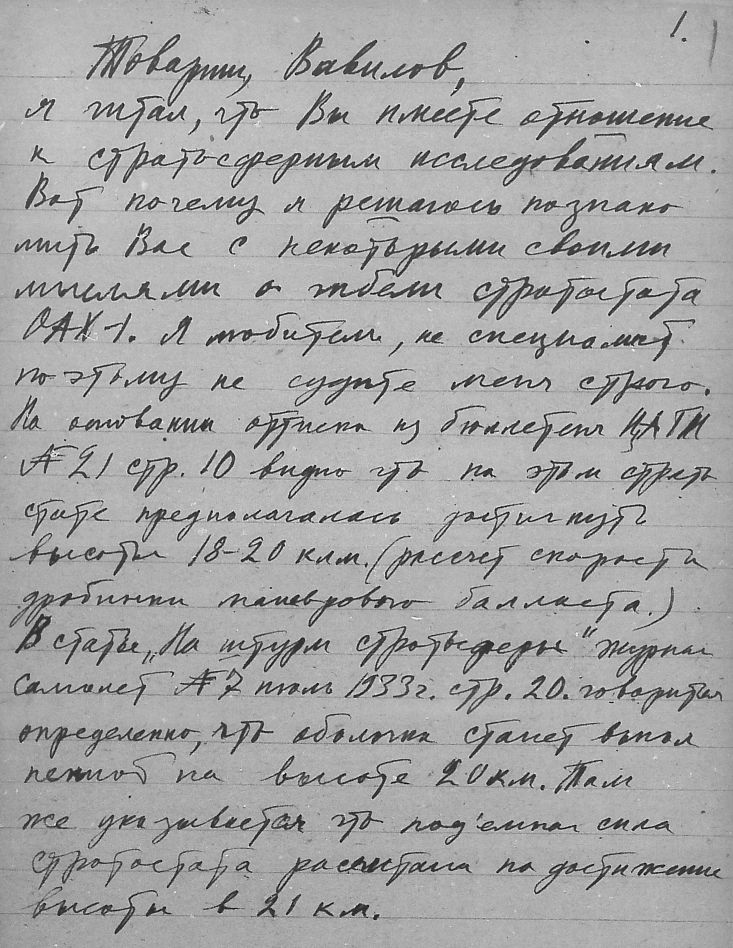 1.
Товарищ, Вавилов,
я читал, что Вы имеете отношение
к стратосферным исследованиям.
Вот почему я решаюсь познако
мить Вас с некоторыми своими
мыслями о гибели стратостата
ОАХ-1. Я любитель, не специалист
поэтому не судите меня строго.
На основании оттиска из бюллетеня ЦАГИ
№ 21 стр. 10 видно что на этом страто
стате предполагалось достигнуть
высоты 18-20 клм. (рассчет скорости
дробинки маневрового балласта.)
В статье „На штурм стратосферы" журнал
самолет № 7 июль 1933 г. стр. 20. говорится
определенно, что оболочка станет выпол
ненной на высоте 20 км. Там
же указывается что под'емная сила
стратостата расчитана на достижение
высоты в 21 км.